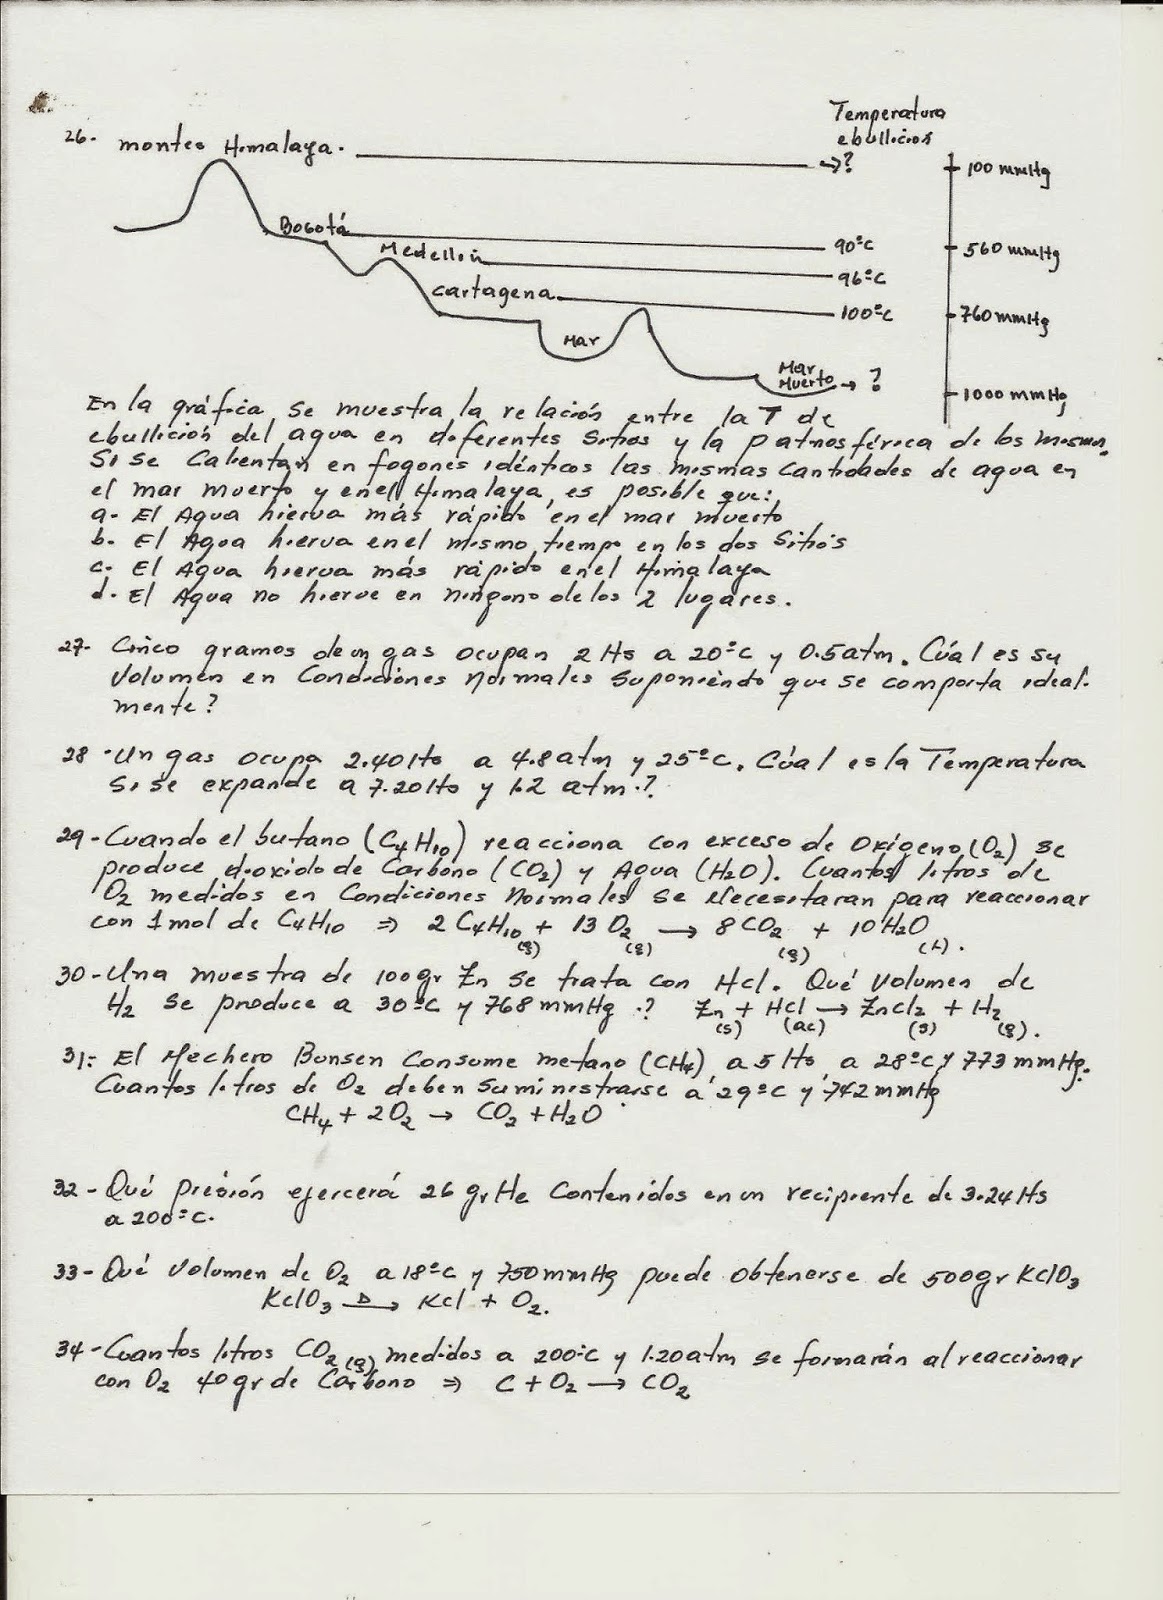 Temperatura
ebullición
26- montes Himalaya. → ? 100 mmHg
Bogotá 90°C 560 mmHg
Medellín 96°C
Cartagena 100°C 760 mmHg
Mar
Mar
Muerto → ? 1000 mmHg
En la gráfica se muestra la relación entre la T de
ebullición del agua en diferentes sitios y la Patmosférica de los mismos.
Si se calientan en fogones idénticos las mismas cantidades de agua en
el mar muerto y en el Himalaya, es posible que:
a- El Agua hierva más rápido en el mar muerto
b. El Agua hierva en el mismo tiempo en los dos sitios
c. El Agua hierva más rápido en el Himalaya
d. El Agua no hierve en ninguno de los 2 lugares.
27- Cinco gramos de un gas ocupan 2 lts a 20°C y 0.5 atm. Cúal es su
volumen en Condiciones Normales suponiendo que se comporta ideal-
mente?
28 - Un gas ocupa 2.40 lts a 4.8 atm y 25°C. Cúal es la Temperatura
si se expande a 7.20 lts y 1.2 atm.?
29- Cuando el butano (C4H10) reacciona con exceso de Oxígeno (O2) se
produce dioxido de Carbono (CO2) y Agua (H2O). Cuantos litros de
O2 medidos en Condiciones Normales se Necesitaran para reaccionar
con 1 mol de C4H10 ⇒ 2 C4H10 (g) + 13 O2 (g) → 8 CO2 (g) + 10 H2O (l).
30- Una muestra de 100 gr Zn se trata con Hcl. Qué volumen de
H2 se produce a 30°C y 768 mmHg .? Zn (s) + Hcl (ac) → Zncl2 (s) + H2 (g).
31.- El Mechero Bunsen consume metano (CH4) a 5 lts a 28°C y 773 mmHg.
Cuantos litros de O2 deben suministrarse a 29°C y 742 mmHg
CH4 + 2O2 → CO2 + H2O
32- Qué presión ejercerá 26 gr He contenidos en un recipiente de 3.24 lts
a 200°C.
33- Qué volumen de O2 a 18°C y 750 mmHg puede obtenerse de 500 gr KclO3
KclO3 Δ→ Kcl + O2.
34- Cuantos litros CO2 (g) medidos a 200°C y 1.20 atm se formarán al reaccionar
con O2 40 gr de Carbono ⇒ C + O2 → CO2